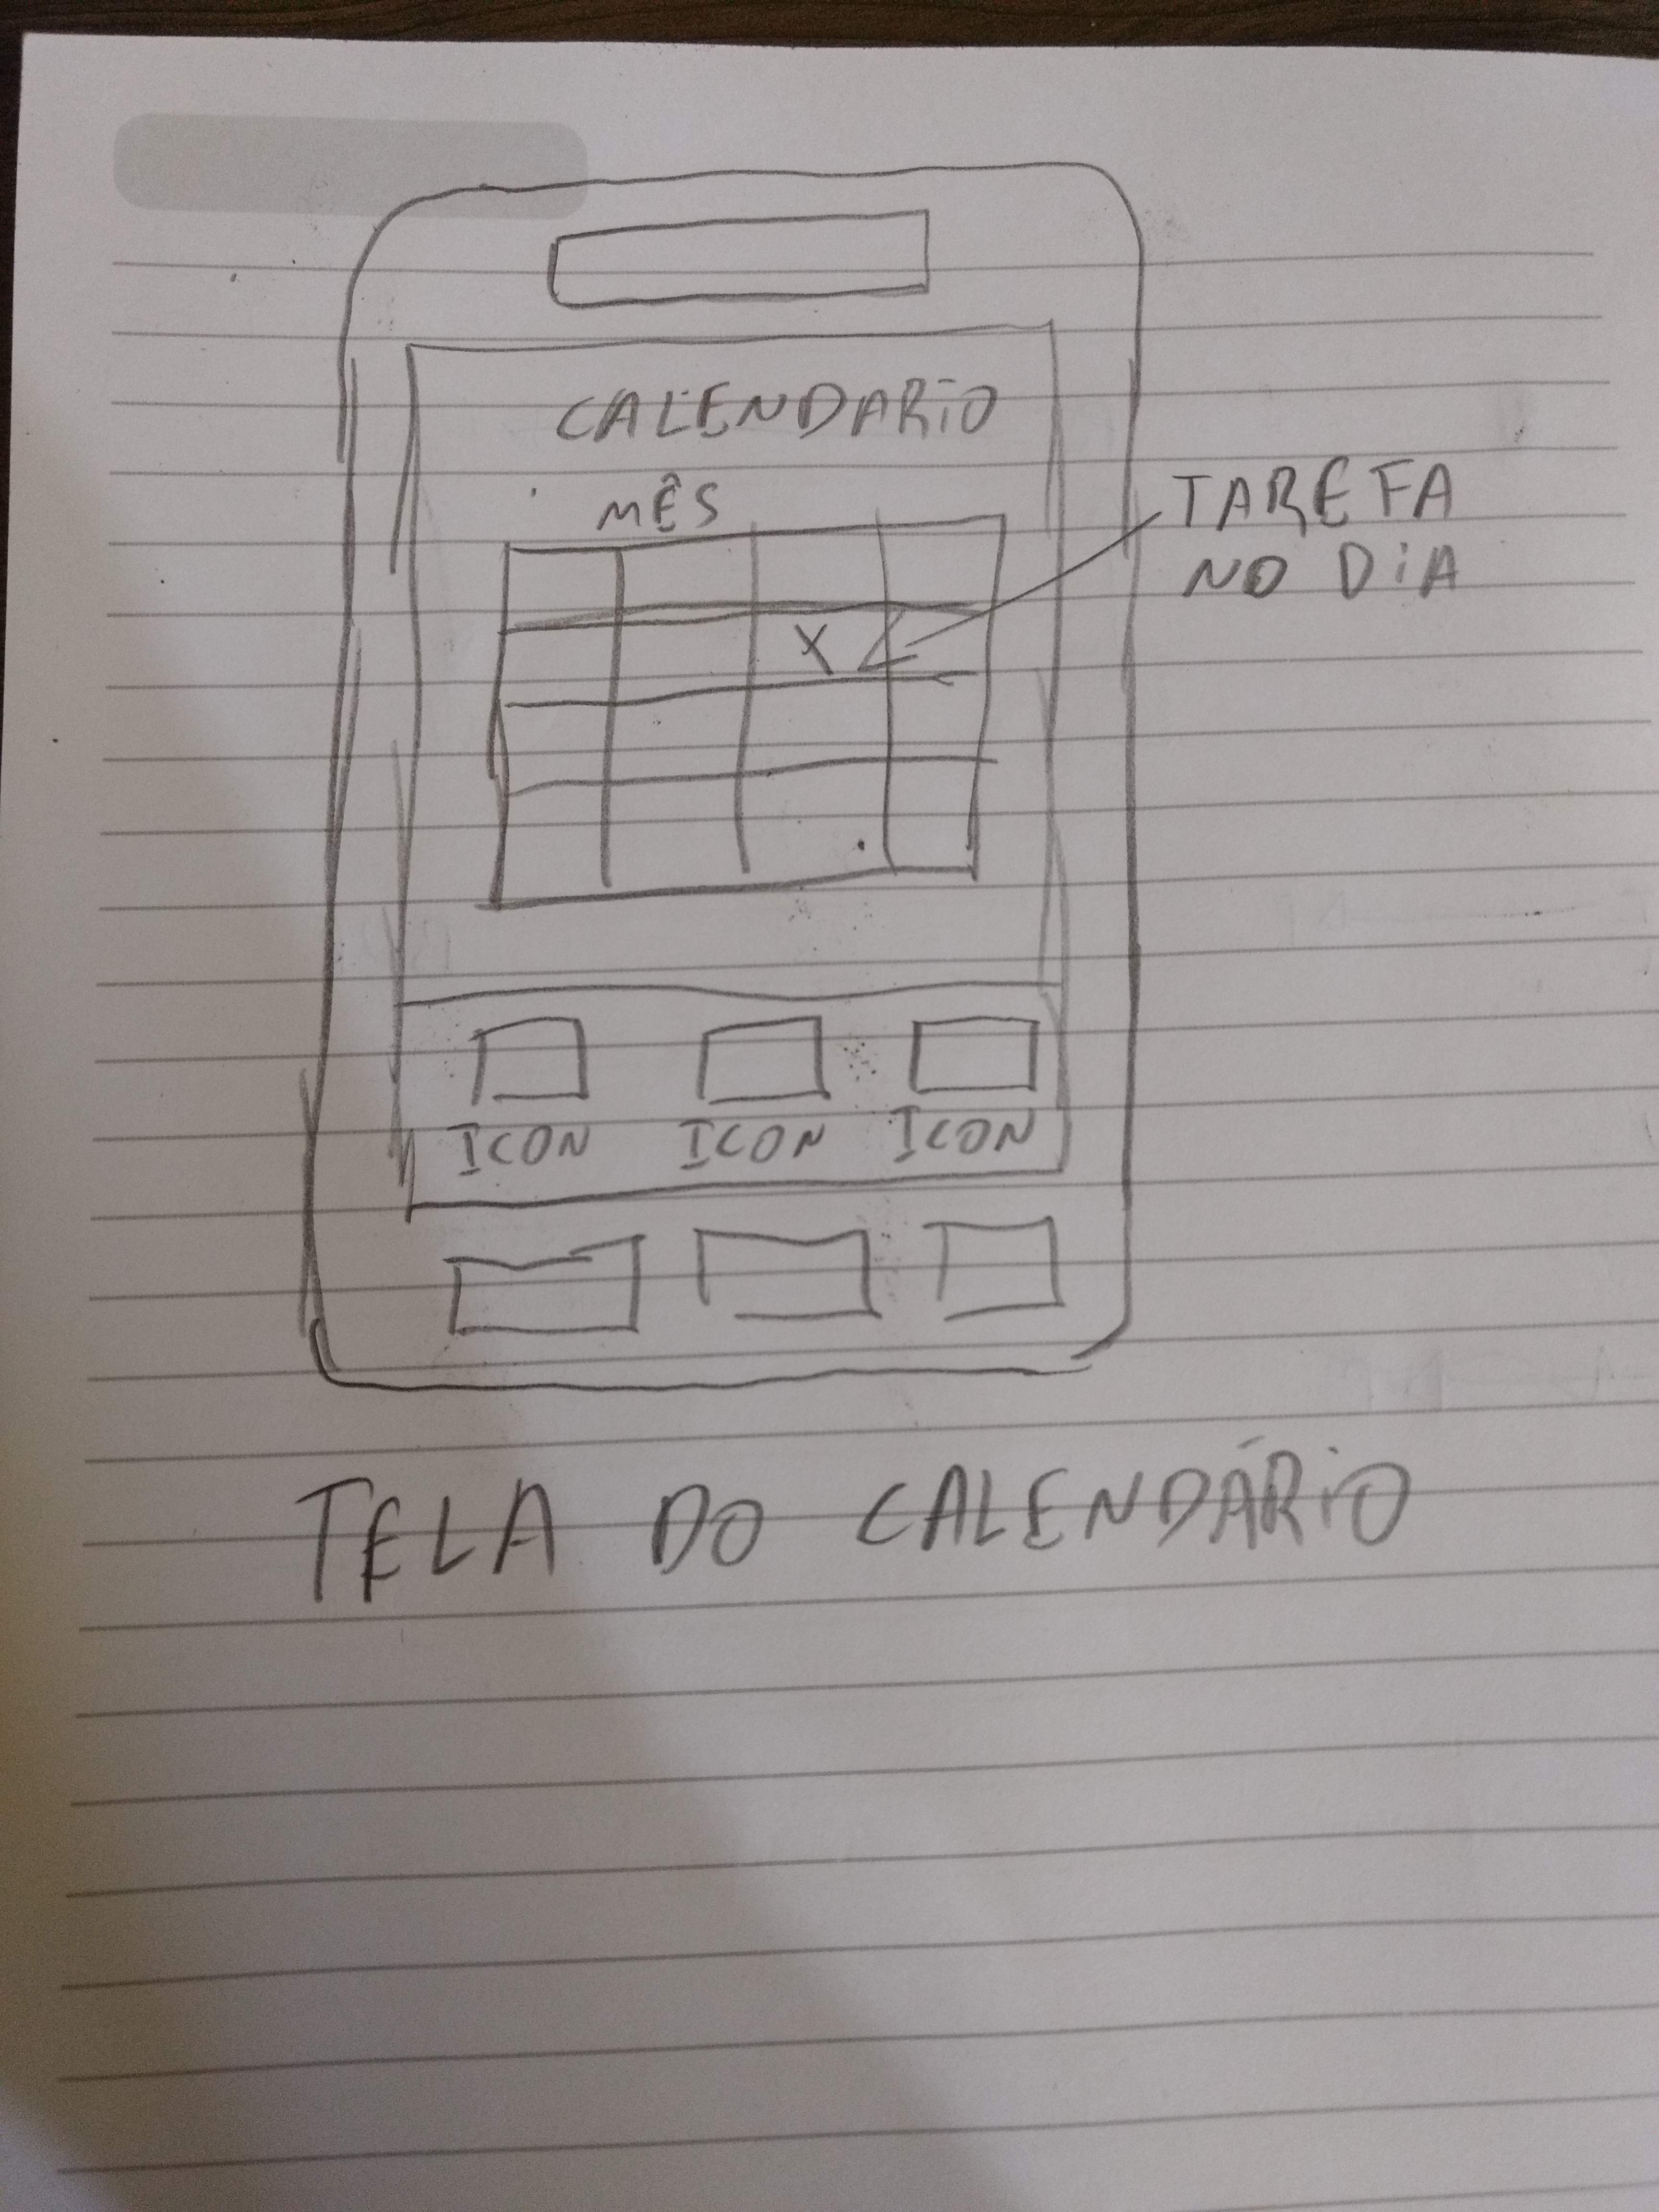 CALENDARIO
MÊS
TAREFA
NO DIA
X
ICON ICON ICON
TELA DO CALENDÁRIO